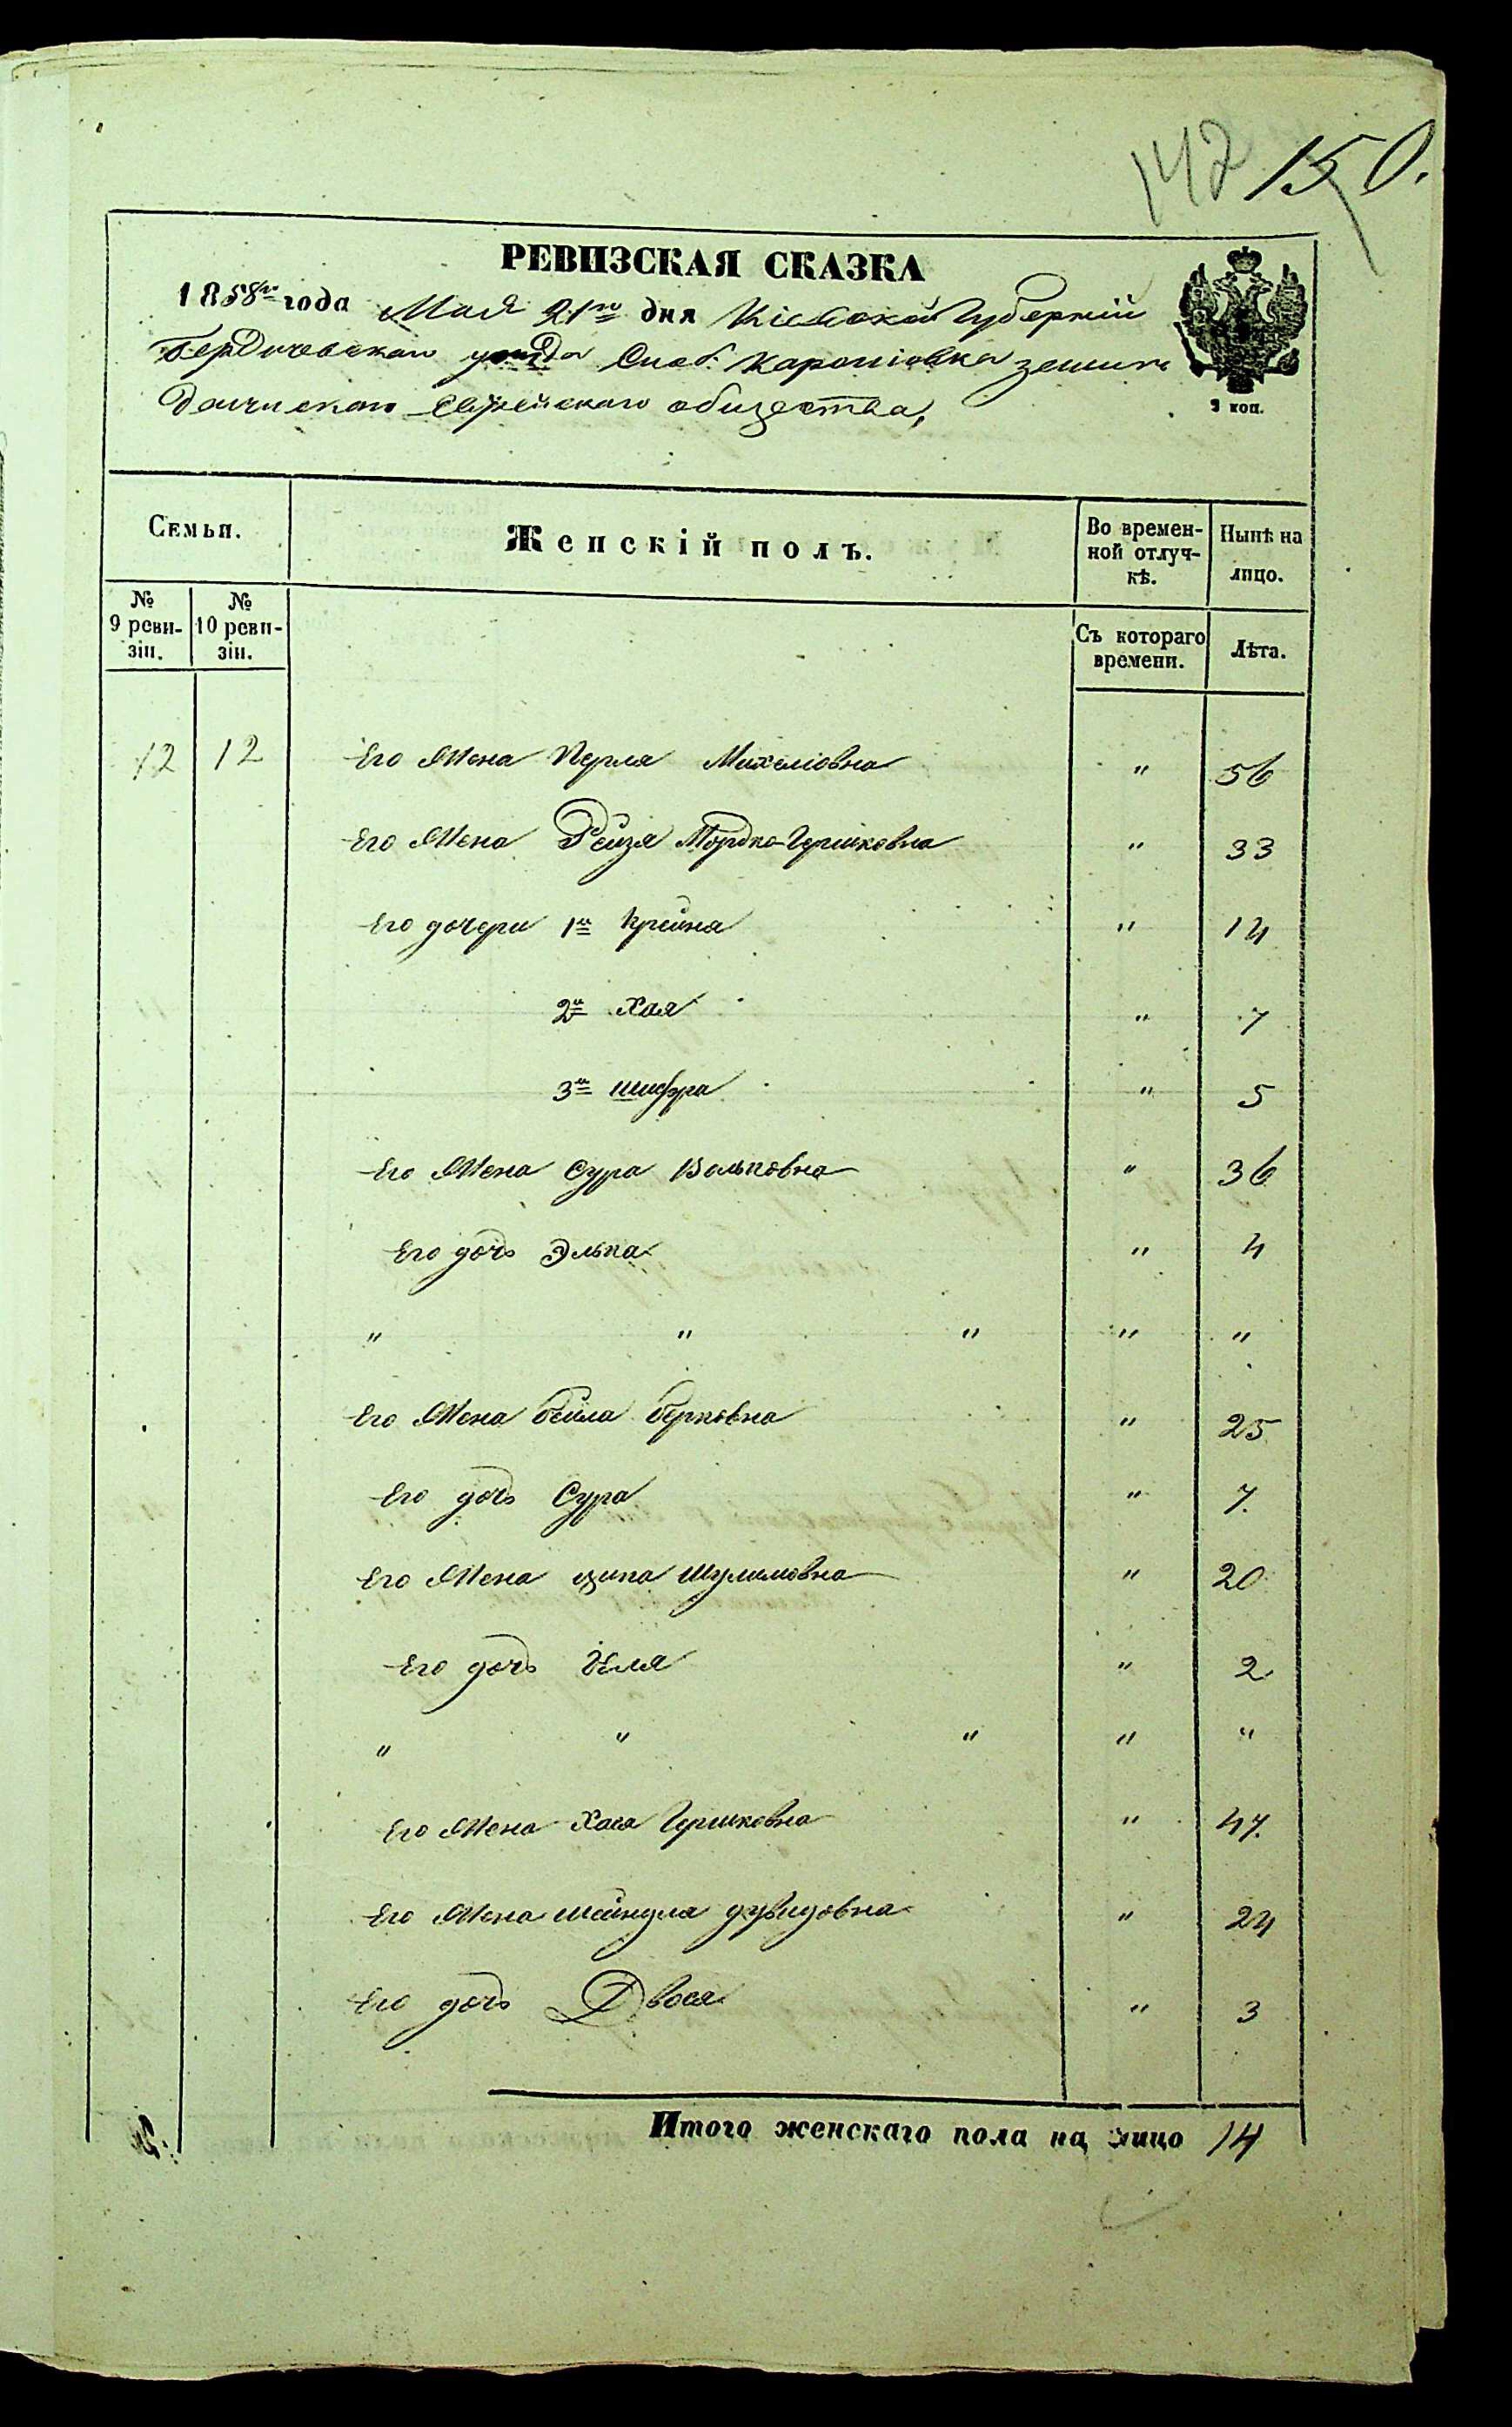 142 150.
РЕВИЗСКАЯ СКАЗКА
1858го года Мая 21го дня Кіевской Губерніи
Бердичевскаго уезда Слоб. Каропіовка
Еврейскаго общества,
3 коп.
Семьи. Женскій полъ. Во временной отлучкѣ. Нынѣ на лицо.
№ 9 ревизіи. № 10 ревизіи. Съ котораго времени. Лѣта.
12 12 Его Жена Перля Михеліовна " 56
Его Жена Рейзя Мордко-Гершковна " 33
Его дочери 1я Крейна " 14
2я Хая " 7
3я Шифра " 5
Его Жена Сура Волковна " 36
Его дочь Элька " 4
" " " " "
Его Жена Бейла Берковна " 25
Его дочь Сура " 7.
Его Жена Ципа Шулимовна " 20
Его дочь " 2
" " " " "
Его Жена Хася Гершковна " 47.
Его Жена Шейндля Дувидовна " 24
Его дочь Двося " 3
Итого женскаго пола на лицо 14